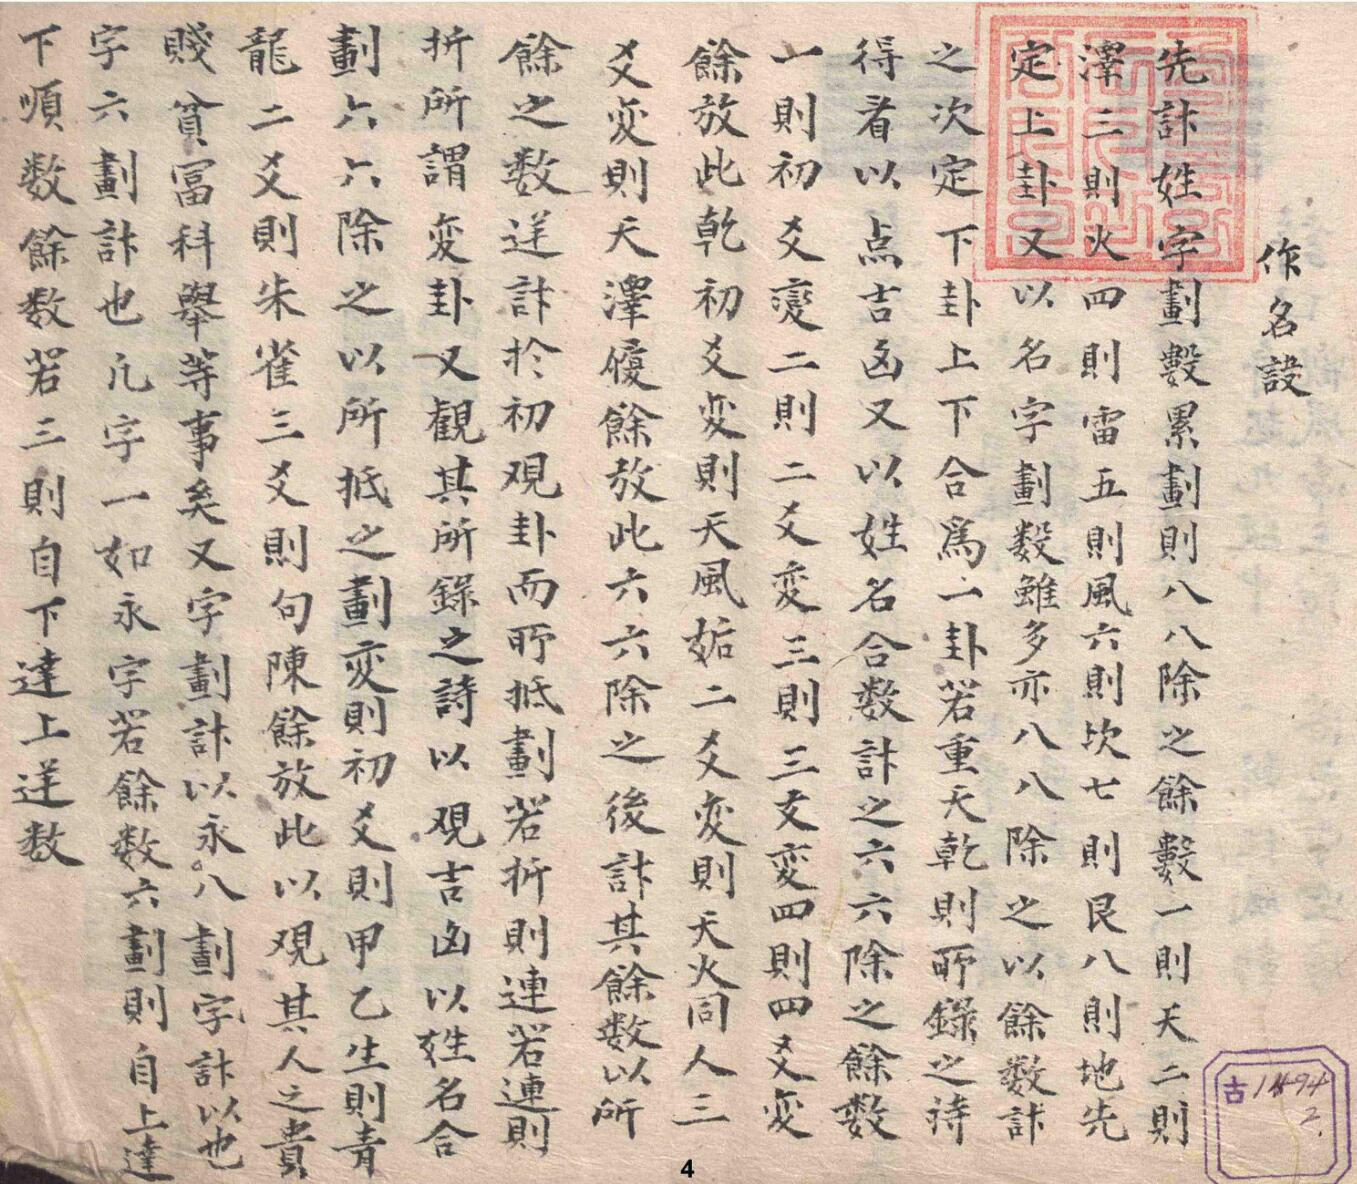 作名設
先計姓字劃數累劃則八八除之餘數一則天二則
澤三則火四則雷五則風六則坎七則艮八則地先
定上卦又以名字劃数雖多亦八八除之以餘数計
之次定下卦上下合爲一卦若重天乾則所錄之詩
得看以点吉凶又以姓名合数計之六六除之餘数
一則初爻變二則二爻変三則三爻変四則四爻変
餘放此乾初爻変則天風姤二爻変則天火同人三
爻変則天澤履餘放此六六除之後計其餘数以所
餘之数逆計於初观卦而所抵劃若折則連若連則
折所謂変卦又觀其所錄之詩以观吉凶以姓名合
劃六六除之以所抵之劃変則初爻則甲乙生則青
龍二爻則朱雀三爻則句陳餘放此以观其人之貴
賤貧冨科舉等事矣又字劃計以永八劃字計以也
字六劃計也凡字一如永字若餘数六劃則自上達
下順数餘数若三則自下達上逆数
4
古 1494
2.